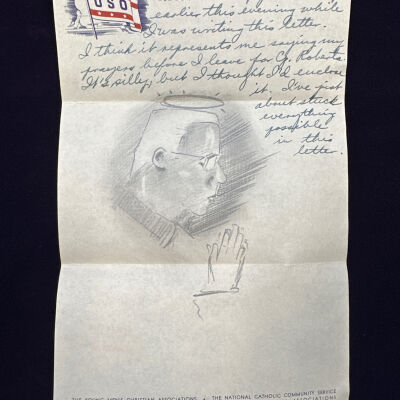 USO
earlier this evening while
I was writing this letter.
I think it represents me saying my
prayers before I leave for Cp. Roberts.
It's silly, but I thought I'd enclose
it. I've just
about stuck
everything
possible
in this
letter.
THE YOUNG MEN'S CHRISTIAN ASSOCIATIONS • THE NATIONAL CATHOLIC COMMUNITY SERVICE
ASSOCIATIONS